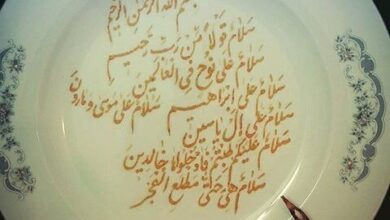 بسم الله الرحمن الرحیم
سَلامٌ قَولاً مِن رَبٍّ رَحیمٍ
سَلامٌ عَلی نُوحٍ فِی العالَمینَ
سَلامٌ عَلی إبراهیم
سَلامٌ عَلی مُوسی وَ هارُونَ
سَلامٌ عَلی إل یاسین
سَلامٌ عَلَیکُم طِبتُم فَادخُلُوها خالِدین
سَلامٌ هِیَ حَتّی مَطلَعِ الفَجر